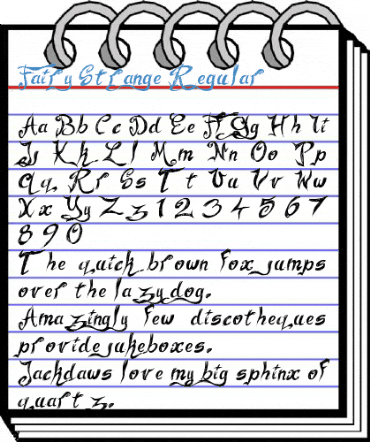 Fairy Strange Regular
Aa Bb Cc Dd Ee Ff Gg Hh Ii
Jj Kk Ll Mm Nn Oo Pp
Qq Rr Ss Tt Uu Vv Ww
Xx Yy Zz 1 2 3 4 5 6 7
8 9 0
The quick brown fox jumps
over the lazy dog.
Amazingly few discotheques
provide jukeboxes.
Jackdaws love my big sphinx of
quartz.